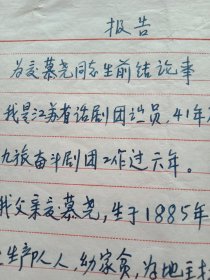 报告
为夏慕尧同志生前结论事
我是江苏省话剧团演员,41年
九旅奋斗剧团工作过六年。
我父亲夏慕尧,生于1885年
生产队人,幼家贫,为地主